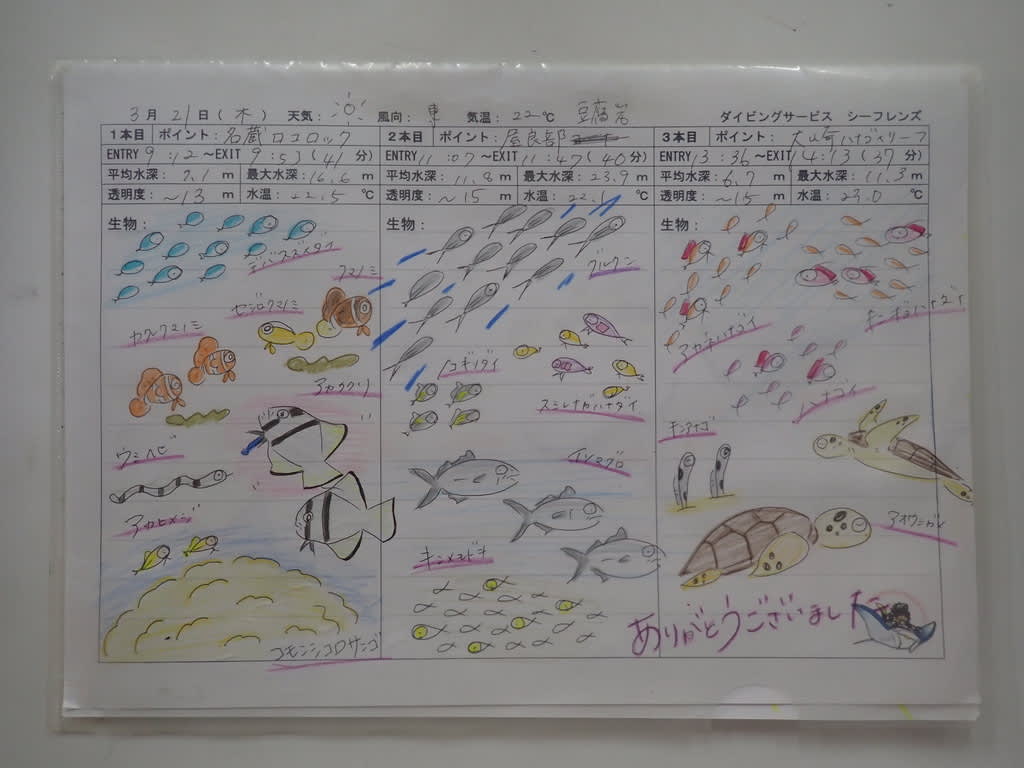 3月21日(木) 天気: 風向: 東 気温: 22℃ 豆腐岩 ダイビングサービス シーフレンズ
1本目 ポイント: 名蔵ロコロック
ENTRY 9:12~EXIT 9:53(41分)
平均水深: 7.1 m 最大水深: 16.6 m
透明度: ~13 m 水温: 22.5 ℃
生物:
デバスズメダイ
クマノミ
セジロクマノミ
カクレクマノミ
アカククリ
ウミヘビ
アカヒメジ
コモンシコロサンゴ
2本目 ポイント: 屋良部
ENTRY 11:07~EXIT 11:47(40分)
平均水深: 11.8 m 最大水深: 23.9 m
透明度: ~15 m 水温: 22.1 ℃
生物:
グルクン
ノコギリダイ
スミレナガハナダイ
イソマグロ
キンメモドキ
3本目 ポイント: 大崎ハナゴイリーフ
ENTRY 13:36~EXIT 14:13(37分)
平均水深: 6.7 m 最大水深: 11.3 m
透明度: ~15 m 水温: 23.0 ℃
生物:
アカネハナゴイ
ハナゴイ
アオウミガメ
ありがとうございました